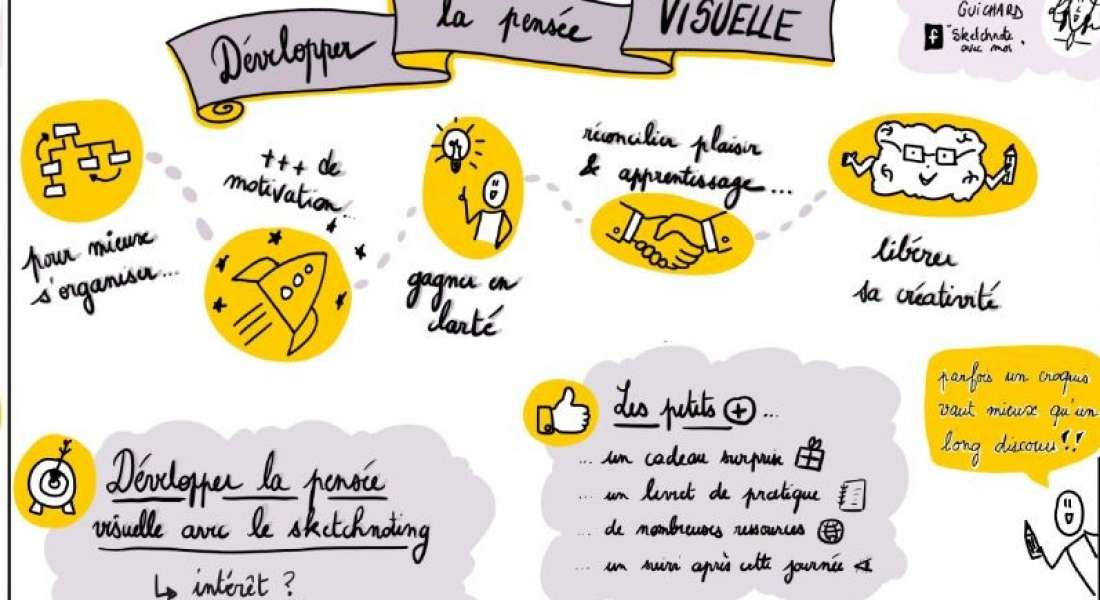 Développer
la pensée
VISUELLE
GUICHARD
f "Sketchnote
avec moi"
pour mieux
s'organiser...
+++ de
motivation...
gagner en
clarté
réconcilier plaisir
& apprentissage...
libérer
sa créativité
parfois un croquis
vaut mieux qu'un
long discours !!
Développer la pensée
visuelle avec le sketchnoting
↳ intérêt ?
Les petits + ...
... un cadeau surprise
... un livret de pratique
... de nombreuses ressources
... un suivi après cette journée